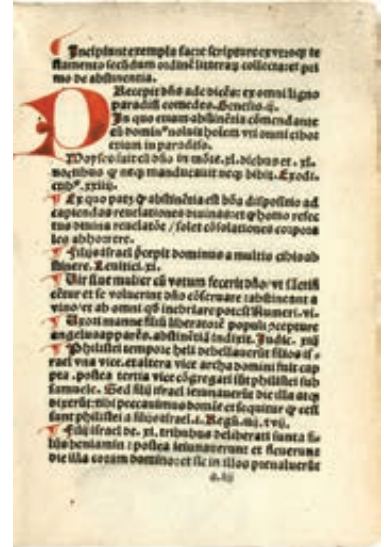 ¶ Incipiunt exempla sacre scripture ex vtroq̃ te
stamento secũdum ordinẽ litterarũ collecta: et pri
mo de abstinentia.
PRecepit dñs ade dicẽs: ex omni ligno
paradisi comedes. Genesis .ij.
In quo etiam abstinẽtia cõmendatur
cũ dominꝰ noluit hoĩem vti omni cibor
in paradiso.
Moyses fuit cũ dño in mõte .xl. diebus et .xl.
noctibus q̃ neq̃ manducauit neq̃ bibit. Exodi.
¶ Ex quo patꝫ q̃ abstinẽtia est bõa dispositio ad
capiendas reuelationes diuinas: et q̃ homo refec
tus diuina reuelatõe / solet cõsolationes corpora
les abhorrere.
¶ Filijs israel p̃cepit dominus a multis cibis ab
stinere. Leuitici .xi.
¶ Uir siue mulier cũ votum fecerit dño / vt sãctifi
cẽtur et se voluerint dño cõseruare: abstineant a
vino / et ab omni qđ inebriare potest Numeri .vi.
¶ Uxori manue filiũ liberatorẽ populi
angelus apparẽs. abstinẽtiã indixit. Judic. xiij
¶ Philistei tempore heli debellauerũt filios is-
rael vna vice. et altera vice archa domini fuit cap
pta. postea tertia vice cõgregati sũt philistei sub
samuele. Sed filij israel ieiunauerũt die illa atq̃
dixerũt: tibi peccauimus domĩe et sequitur q̃ cesi
sunt philistei a filijs israel. i. Regũ.
¶ Filij israel de .xi. tribubus deliberati fi-
lijs beniamin: postea ieiunauerunt et fleuerunt
die illa coram domino: et sic in illos preualuerũt
a. iij